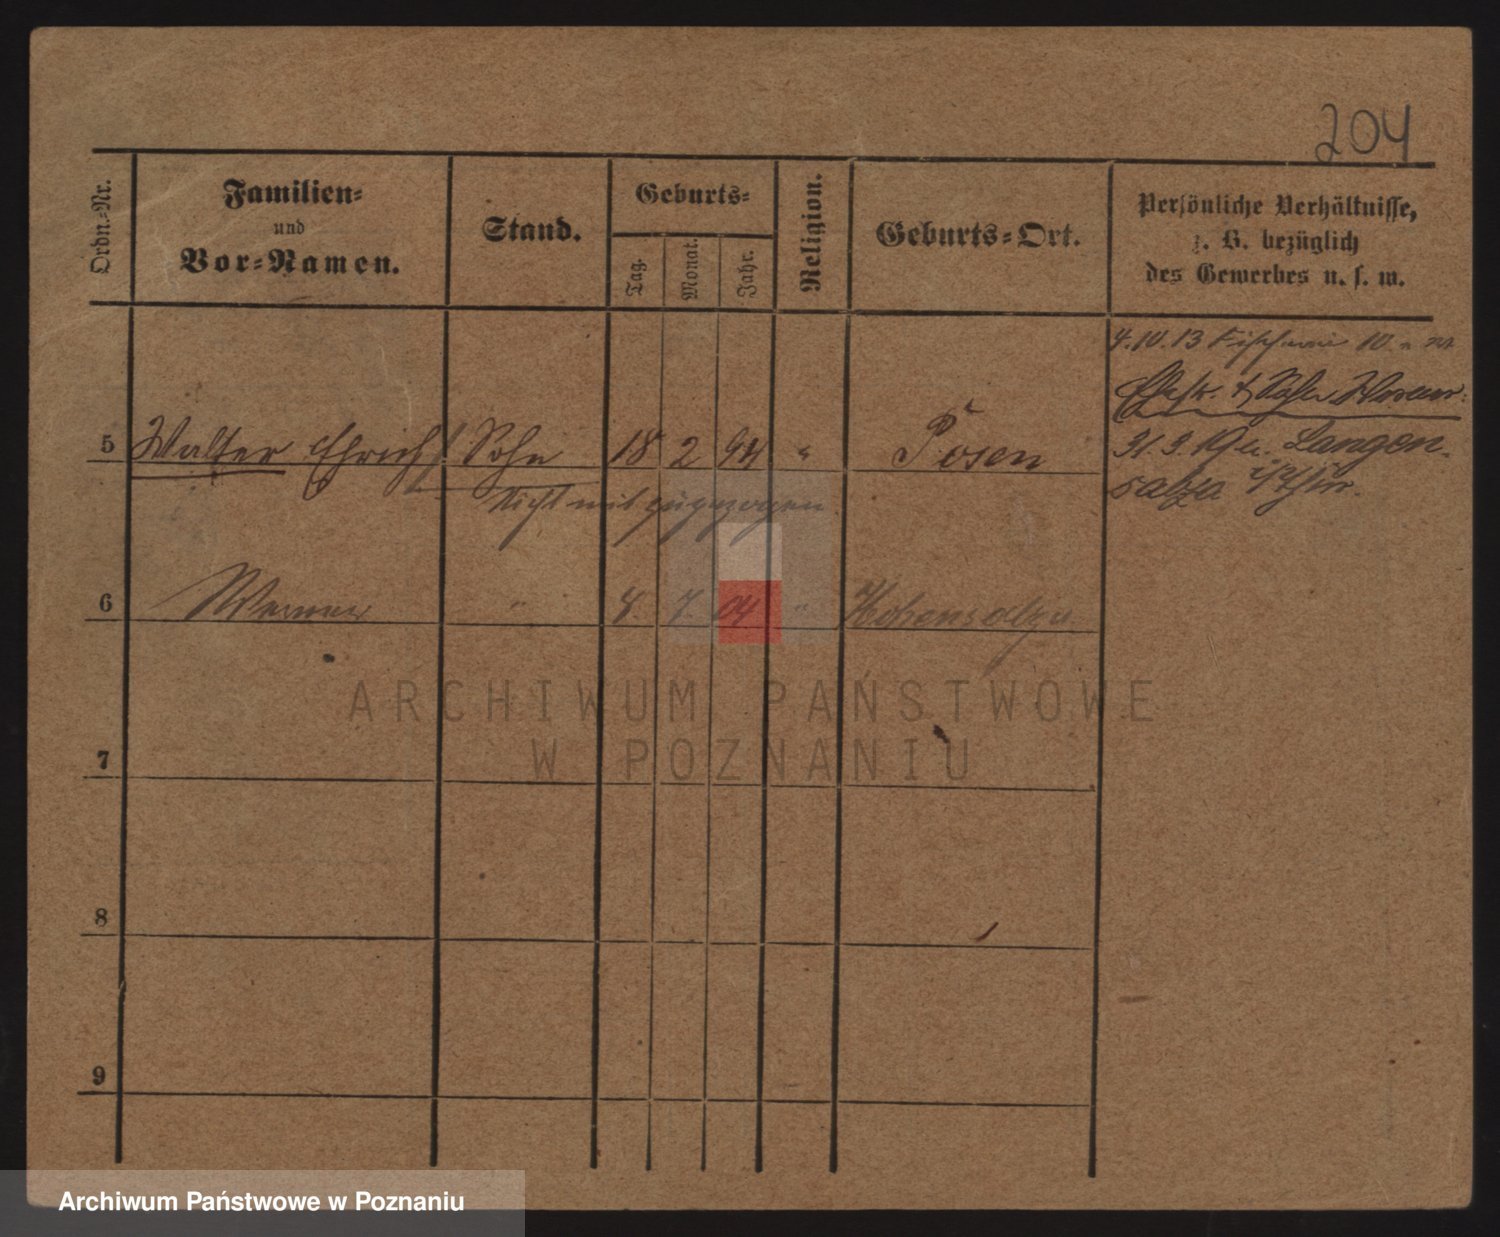 204
Ordn.-Nr.
Familien-
und
Vor-Namen.
Stand.
Geburts-
Tag.
Monat.
Jahr.
Religion.
Geburts-Ort.
Persönliche Verhältnisse,
z. B. bezüglich
des Gewerbes u. s. w.
4.10.13 10
5 Walter Ehrich Sohn 18 2 94 " Posen
31.3.19 n. Langen-
salza i/Thür.
Nicht mit zugezogen
6 Werner " 8. 7. 04 " Hohensalza
7
8
9
ARCHIWUM PAŃSTWOWE
W POZNANIU
Archiwum Państwowe w Poznaniu